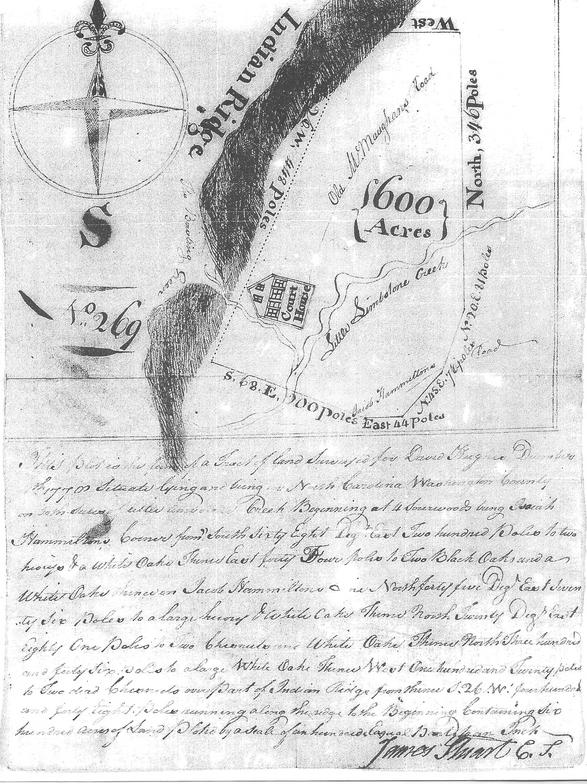 West
Indian Ridge
S. 26 W. 448 Poles
Old McMaughans Road
North, 346 Poles
600
Acres
S
Bowling Green
Court House
Little Limestone Creek
N. 20. E. 81 poles
No 269
N. 45. E. 76 poles
Road
Jacob Hammiltons
S. 68. E. 200 Poles
East 44 Poles
This plot is the of a Tract of land Surveyed for David
1777 Situate lying and being in North Carolina Washington County
on Creek Beginning at 4 sourwoods being Isaiah
Hammiltons Corner from South Sixty Eight Deg. East Two hundred Poles to two
hicorys & a White Oake Thence East forty Four poles to Two Black Oaks and a
White Oake Thence on Jacob Hammiltons North forty five Deg. East Seven
ty Six Poles to a large hicory & White Oake Thence North Twenty Deg. East
Eighty One Poles to Two and White Oake Thence North Three hundred
and forty Six poles to a large White Oake Thence West One hundred and Twenty poles
to Two dead over Part of Indian Ridge from thence S. 26. W. four hundred
and forty Eight poles running along the ridge to the Beginning Containing Six
hundred acres of Land by a scale of an hundred equal an Inch
James Stuart C. S.